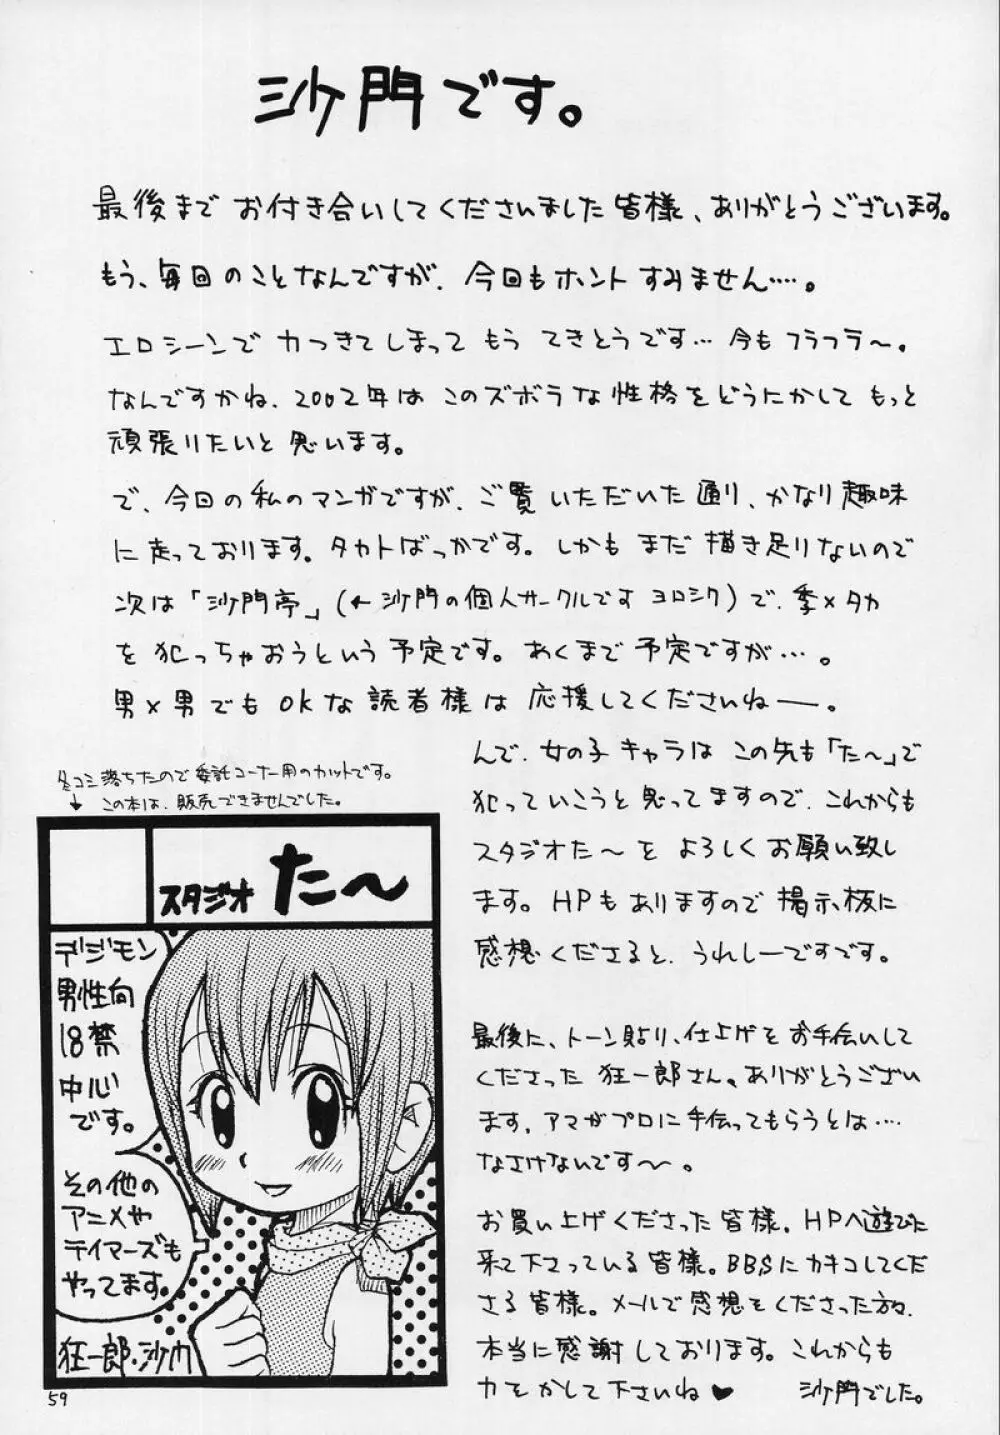 沙門です。
最後まで お付き合いしてくださいました 皆様、ありがとうございます。
もう、毎回のことなんですが、今回もホント すみません……。
エロシーンで 力つきてしまって もう てきとうです… 今も フラフラ〜。
なんですかね、2002年は このズボラな性格をどうにかして もっと
頑張りたいと 思います。
で、今回の私のマンガですが、ご覧 いただいた 通り、かなり趣味
に 走っております。タカトばっかです。しかも まだ 描き足りないので
次は「沙門亭」(←沙門の個人サークルです ヨロシク)で、季×タカ
を 犯っちゃおうという 予定です。あくまで 予定ですが…。
男×男でも OKな読者様は 応援してくださいねー。
んで、女の子 キャラは この先も「た〜」で
犯っていこうと 思ってますので、これからも
スタジオた〜を よろしく お願い致し
ます。HPも ありますので 掲示板に
感想くださると、うれしーですです。
最後に、トーン貼り、仕上げを お手伝いして
くださった 狂一郎さん。ありがとうござい
ます。アマがプロに手伝ってもらうとは……
なさけないです〜。
お買い上げくださった 皆様。HPへ遊びに
来て下さっている 皆様。BBSに カキコしてくだ
さる 皆様。メールで 感想をくださった方々、
本当に 感謝しております。これからも
力を かして 下さいね♥
沙門でした。
冬コミ 落ちたので 委託コーナー用のカットです。
↓ この本は、販売できませんでした。
スタジオ た〜
デジモン
男性向
18禁
中心
です。
その他の
アニメや
テイマーズも
やってます
狂一郎・沙門
59